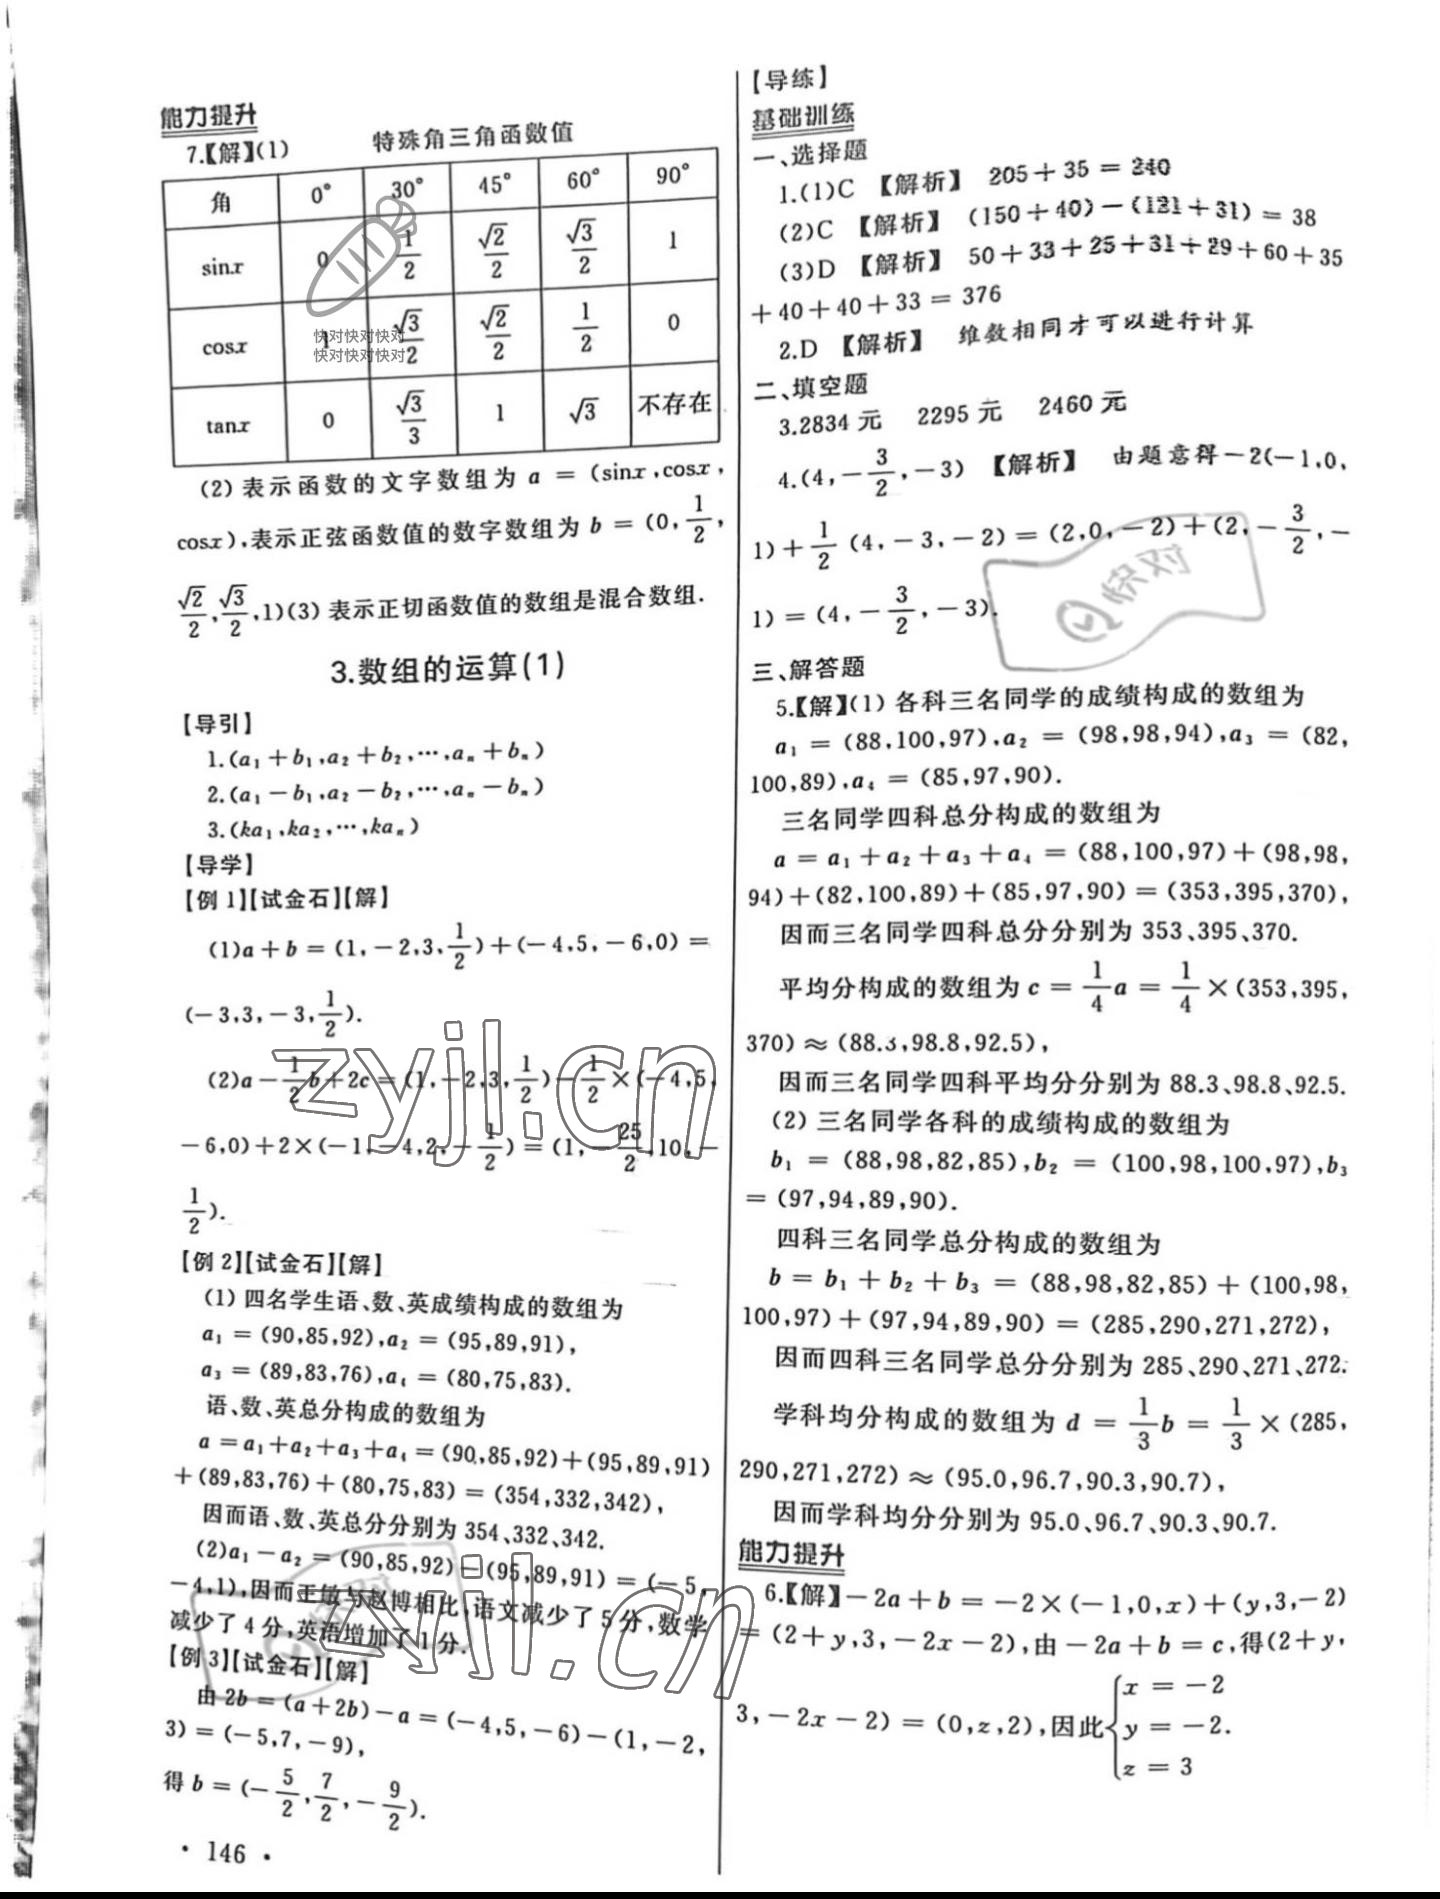 能力提升
7.【解】(1) 特殊角三角函数值
角 0° 30° 45° 60° 90°
sinx 0 1/2 √2/2 √3/2 1
cosx 1 √3/2 √2/2 1/2 0
tanx 0 √3/3 1 √3 不存在
快对快对快对
快对快对快对
(2) 表示函数的文字数组为 a = (sinx,cosx,
cosx),表示正弦函数值的数字数组为 b = (0,1/2,
√2/2,√3/2,1)(3) 表示正切函数值的数组是混合数组.
3.数组的运算(1)
【导引】
1.(a₁+b₁,a₂+b₂,…,aₙ+bₙ)
2.(a₁-b₁,a₂-b₂,…,aₙ-bₙ)
3.(ka₁,ka₂,…,kaₙ)
【导学】
【例 1】【试金石】【解】
(1)a+b = (1,-2,3,1/2)+(-4,5,-6,0) =
(-3,3,-3,1/2).
(2)a-1/2b+2c = (1,-2,3,1/2)-1/2×(-4,5,
-6,0)+2×(-1,-4,2,-1/2) = (1,-25/2,10,-
1/2).
zyjl.cn
【例 2】【试金石】【解】
(1) 四名学生语、数、英成绩构成的数组为
a₁ = (90,85,92),a₂ = (95,89,91),
a₃ = (89,83,76),a₄ = (80,75,83).
语、数、英总分构成的数组为
a = a₁+a₂+a₃+a₄ = (90,85,92)+(95,89,91)
+(89,83,76)+(80,75,83) = (354,332,342),
因而语、数、英总分分别为 354、332、342.
(2)a₁-a₂ = (90,85,92)-(95,89,91) = (-5,
-4,1),因而王敏与赵博相比,语文减少了 5 分,数学
减少了 4 分,英语增加了 1 分.
zyjl.cn
快对
【例 3】【试金石】【解】
由 2b = (a+2b)-a = (-4,5,-6)-(1,-2,
3) = (-5,7,-9),
得 b = (-5/2,7/2,-9/2).
· 146 ·
【导练】
基础训练
一、选择题
1.(1)C 【解析】 205+35 = 240
(2)C 【解析】 (150+40)-(121+31) = 38
(3)D 【解析】 50+33+25+31+29+60+35
+40+40+33 = 376
2.D 【解析】 维数相同才可以进行计算
二、填空题
3.2834 元 2295 元 2460 元
4.(4,-3/2,-3) 【解析】 由题意得-2(-1,0,
1)+1/2(4,-3,-2) = (2,0,-2)+(2,-3/2,-
1) = (4,-3/2,-3).
快对
三、解答题
5.【解】(1) 各科三名同学的成绩构成的数组为
a₁ = (88,100,97),a₂ = (98,98,94),a₃ = (82,
100,89),a₄ = (85,97,90).
三名同学四科总分构成的数组为
a = a₁+a₂+a₃+a₄ = (88,100,97)+(98,98,
94)+(82,100,89)+(85,97,90) = (353,395,370),
因而三名同学四科总分分别为 353、395、370.
平均分构成的数组为 c = 1/4a = 1/4×(353,395,
370) ≈ (88.3,98.8,92.5),
因而三名同学四科平均分分别为 88.3、98.8、92.5.
(2) 三名同学各科的成绩构成的数组为
b₁ = (88,98,82,85),b₂ = (100,98,100,97),b₃
= (97,94,89,90).
四科三名同学总分构成的数组为
b = b₁+b₂+b₃ = (88,98,82,85)+(100,98,
100,97)+(97,94,89,90) = (285,290,271,272),
因而四科三名同学总分分别为 285、290、271、272.
学科均分构成的数组为 d = 1/3b = 1/3×(285,
290,271,272) ≈ (95.0,96.7,90.3,90.7),
因而学科均分分别为 95.0、96.7、90.3、90.7.
能力提升
6.【解】-2a+b = -2×(-1,0,x)+(y,3,-2)
= (2+y,3,-2x-2),由-2a+b = c,得(2+y,
3,-2x-2) = (0,z,2),因此{x = -2
y = -2.
z = 3